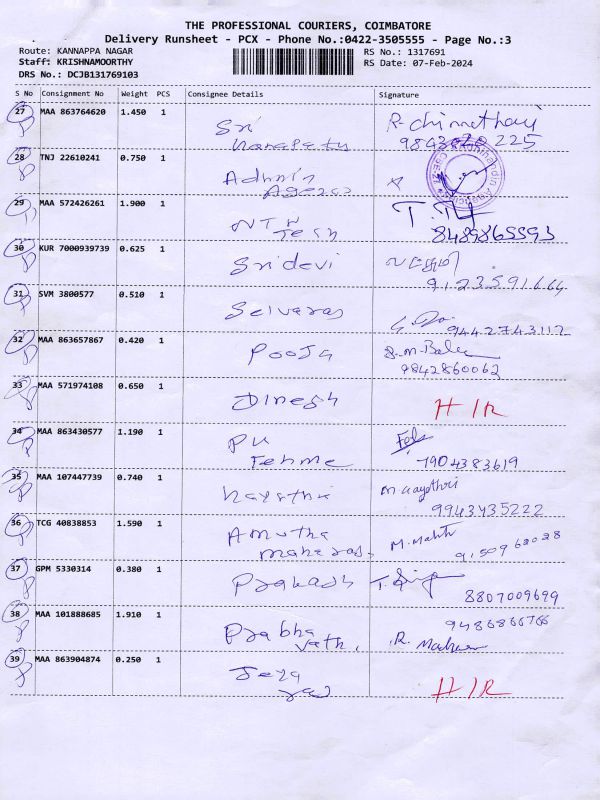 THE PROFESSIONAL COURIERS, COIMBATORE
Delivery Runsheet - PCX - Phone No.:0422-3505555 - Page No.:3
Route: KANNAPPA NAGAR
Staff: KRISHNAMOORTHY
DRS No.: DCJB131769103
RS No.: 1317691
RS Date: 07-Feb-2024
S No Consignment No Weight PCS Consignee Details Signature
27 MAA 863764620 1.450 1 Sri R. Chinnathayi
9843020225
28 TNJ 22610241 0.750 1 Admin
29 MAA 572426261 1.900 1 NTW Tech
8489865593
30 KUR 7000939739 0.625 1 Sridevi
9123591664
31 SVM 3800577 0.510 1 Selvaras
9442743112
32 MAA 863657867 0.420 1 Pooja
9842860062
33 MAA 571974108 0.650 1 Dinesh HIR
34 MAA 863430577 1.190 1 PU
Fehme 7904383619
35 MAA 107447739 0.740 1 M Gayathri
9943435222
36 TCG 40838853 1.590 1 Amutha
37 GPM 5330314 0.380 1 Prakash
8807009699
38 MAA 101888685 1.910 1 Prabha
vathi. R.
39 MAA 863904874 0.250 1 Jeya HIR